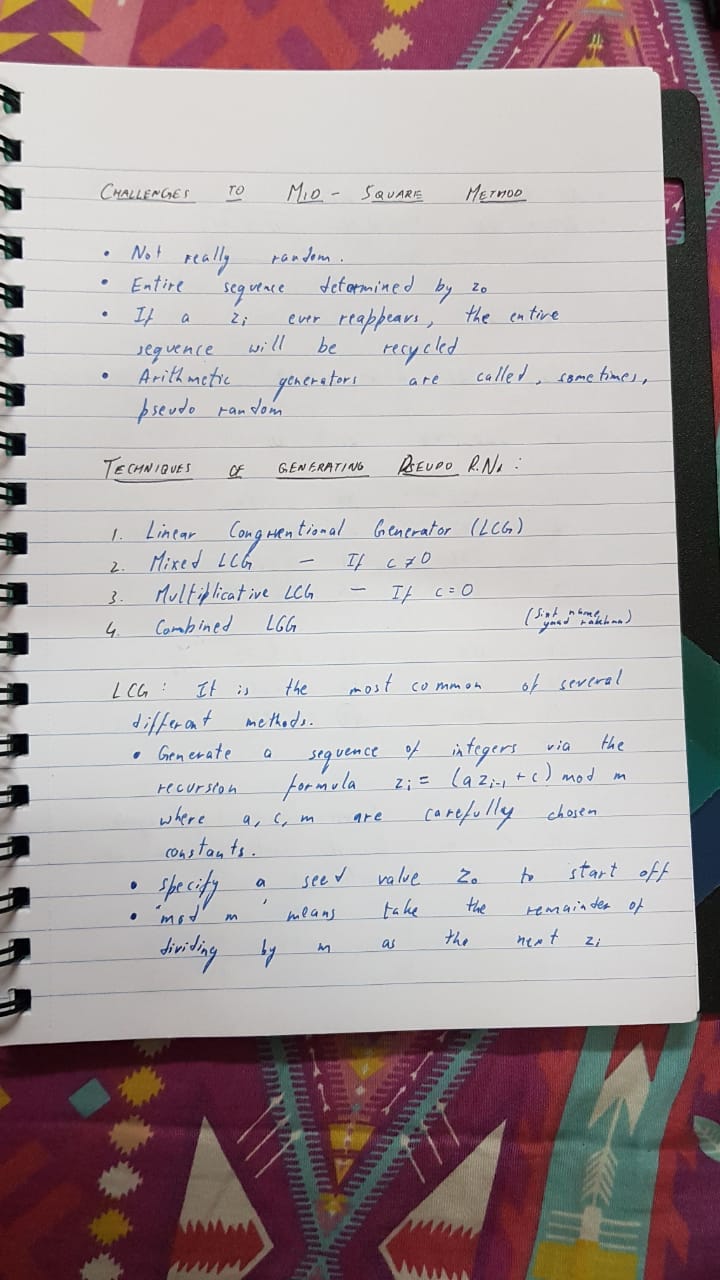 CHALLENGES TO MID - SQUARE METHOD
• Not really random.
• Entire sequence determined by z₀
• If a zᵢ ever reappears, the entire
sequence will be recycled
• Arithmetic generators are called, sometimes,
pseudo random
TECHNIQUES OF GENERATING PSEUDO R.Ns :
1. Linear Congruentional Generator (LCG)
2. Mixed LCG – If c ≠ 0
3. Multiplicative LCG – If c = 0
4. Combined LGG (Sirf name
yaad rakhna)
LCG : It is the most common of several
different methods.
• Generate a sequence of integers via the
recursion formula zᵢ = (a zᵢ₋₁ + c) mod m
where a, c, m are carefully chosen
constants.
• Specify a seed value z₀ to start off
• 'mod m' means take the remainder of
dividing by m as the next zᵢ